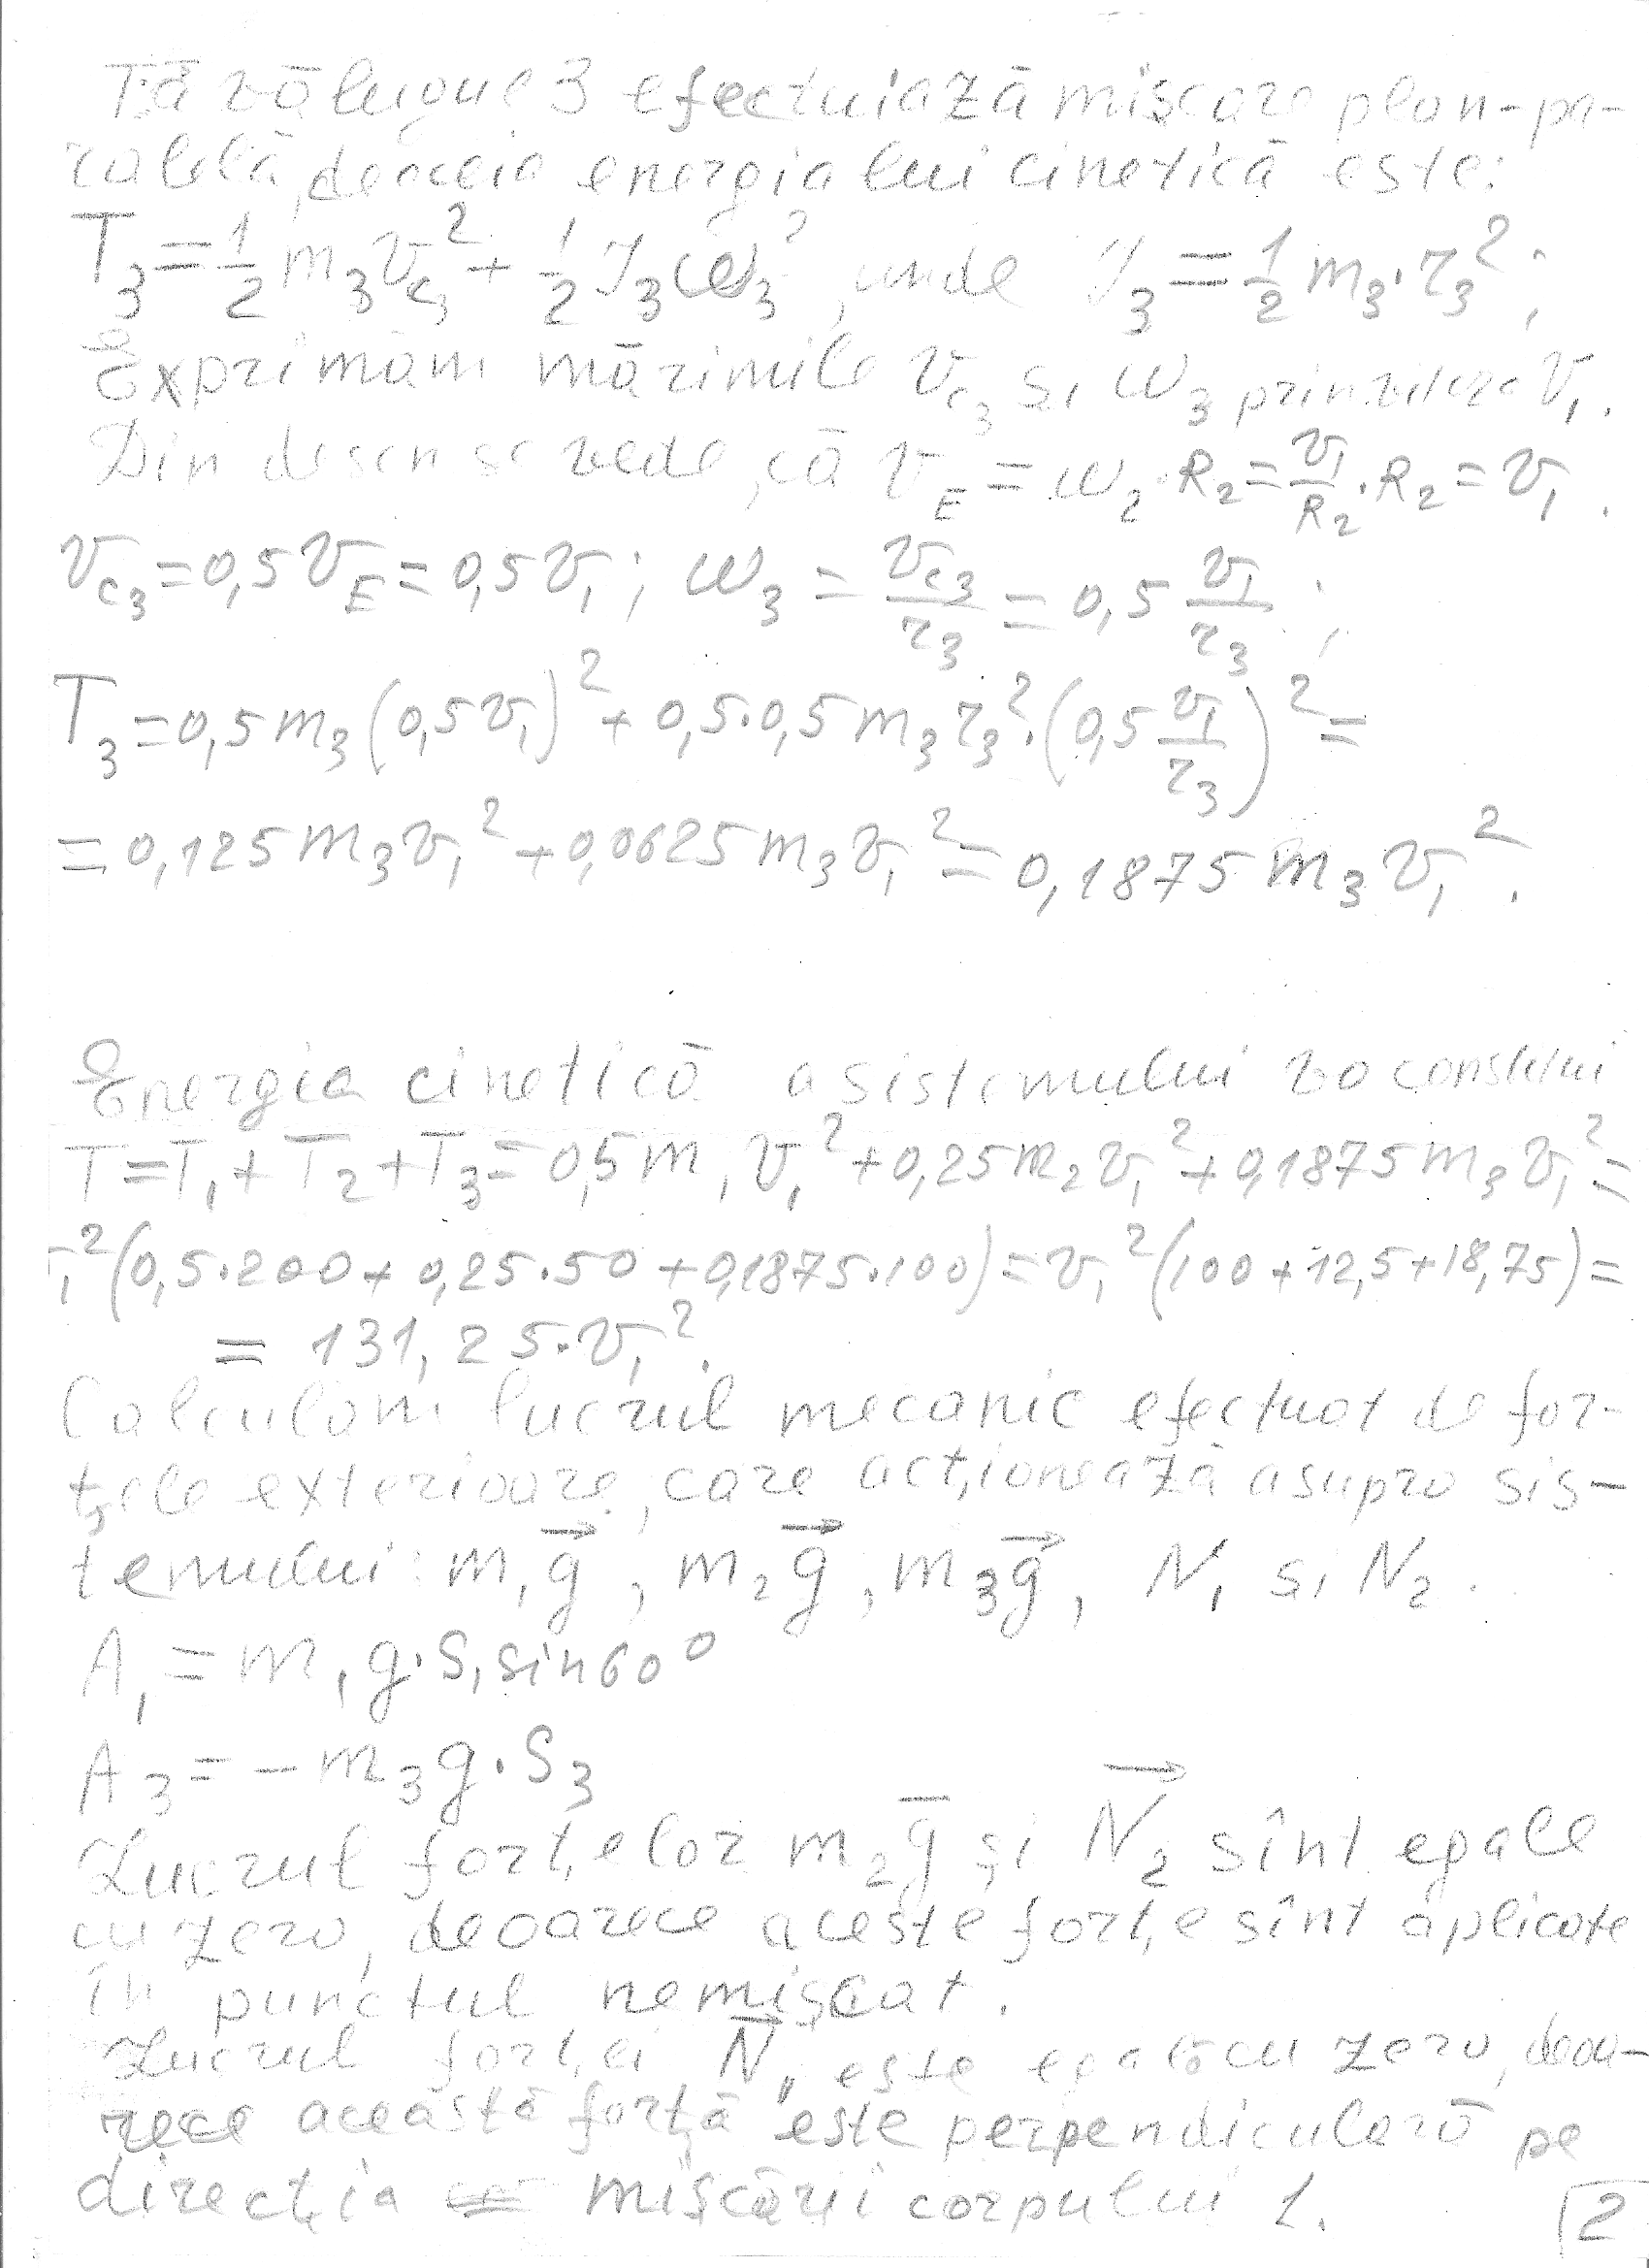 Tăvălugul 3 efectuiază mișcare plan-pa-
ralelă, de aceia energia lui cinetică este:
T₃ = 1/2 m₃v_c₃² + 1/2 J₃ω₃², unde J₃ = 1/2 m₃·r₃²;
Exprimăm mărimile v_c₃ și ω₃ prin viteza v₁.
Din desen se vede, că v_E = ω₂·R₂ = v₁/R₂·R₂ = v₁.
v_c₃ = 0,5v_E = 0,5v₁; ω₃ = v_c₃/r₃ = 0,5 v₁/r₃;
T₃ = 0,5m₃(0,5v₁)² + 0,5·0,5m₃r₃²·(0,5 v₁/r₃)² =
= 0,125m₃v₁² + 0,0625m₃v₁² = 0,1875m₃v₁².
Energia cinetică a sistemului va constitui
T = T₁ + T₂ + T₃ = 0,5m₁v₁² + 0,25m₂v₁² + 0,1875m₃v₁² =
₁²(0,5·200 + 0,25·50 + 0,1875·100) = v₁²(100 + 12,5 + 18,75) =
= 131,25·v₁².
Calculăm lucrul mecanic efectuat de for-
țele exterioare, care acționează asupra sis-
temului: m₁g⃗, m₂g⃗, m₃g⃗, N₁ și N₂.
A₁ = m₁g·S₁sin60°
A₃ = -m₃g·S₃
Lucrul forțelor m₂g̅ și N⃗₂ sînt egale
cu zero, deoarece aceste forțe sînt aplicate
în punctul nemișcat.
Lucrul forței N⃗₁ este egală cu zero, deoa-
rece această forță este perpendiculară pe
direcția mișcării corpului 1.
2